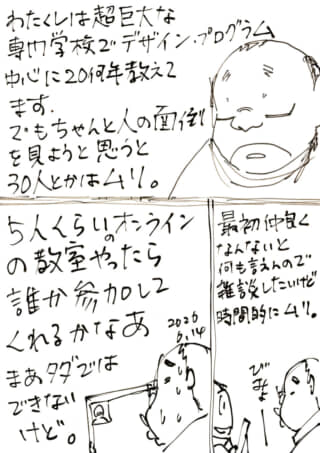 わたくしは超巨大な
専門学校でデザイン・プログラム
中心に20何年教えて
ます。
でもちゃんと人の面倒
を見ようと思うと
30人とかはムリ。
5人くらいのオンライン
の教室やったら
誰か参加して
くれるかなあ
まあタダでは
できない
けど。
2026
6.14
最初仲良く
なんないと
何も言えんので
雑談したいけど
時間的にムリ。